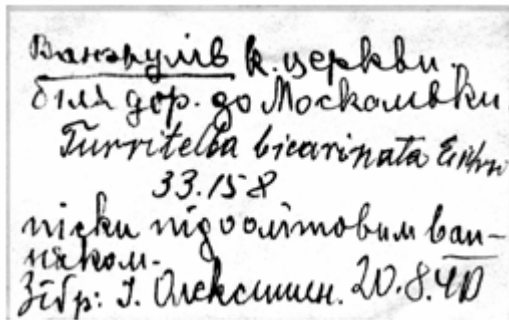 Ванжулів к. церкви.
біля дор. до Москалівки
Turritella bicarinata Eichw
33.158
піски під оолітовим вап-
няком.
Зібр: І. Олексишин. 20.8.40